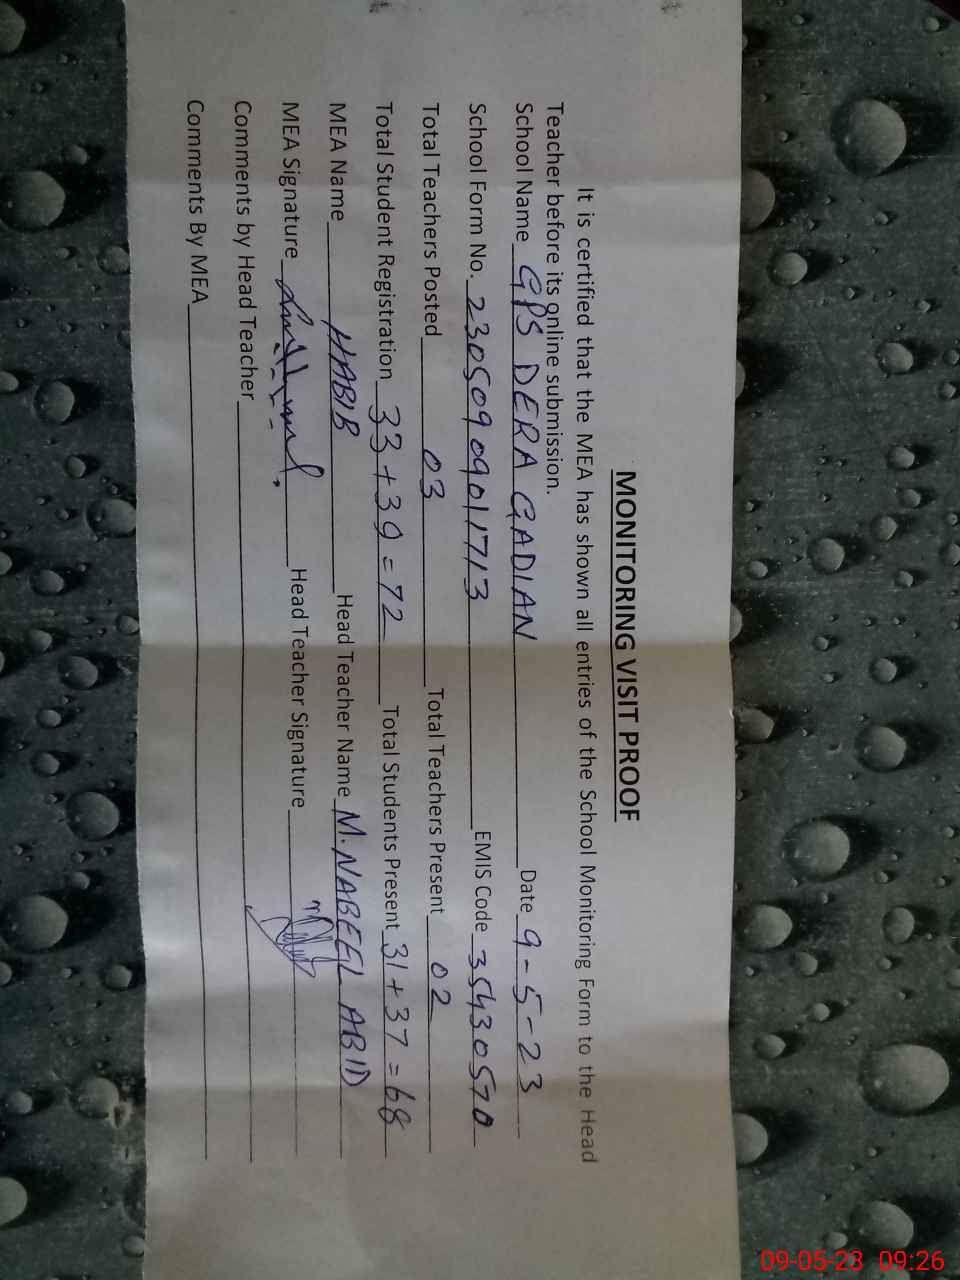 MONITORING VISIT PROOF
It is certified that the MEA has shown all entries of the School Monitoring Form to the Head
Teacher before its online submission.
School Name GPS DERA GADIAN Date 9-5-23
School Form No. 23050909011713 EMIS Code 35430570
Total Teachers Posted 03 Total Teachers Present 02
Total Student Registration 33+39=72 Total Students Present 31+37=68
MEA Name HABIB Head Teacher Name M. NABEEL ABID
MEA Signature Head Teacher Signature
Comments by Head Teacher
Comments By MEA
09-05-23 09:26